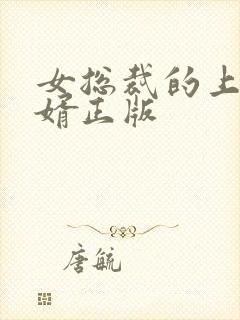 女总裁的上
婿正版
唐毓